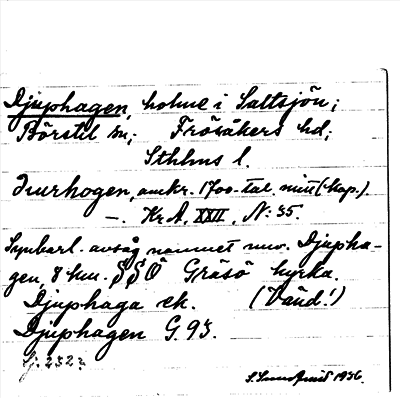 Djuphagen, holme i Saltsjön;
Börstil sn; Frösåkers hd;
Sthlms l.
Diurhogen, omkr. 1700-tal. mitt (kap.).
—. Kr A, XXII, N: 35.
Synbarl. avsåg namnet nuv. Djupha-
gen, 8 hm. SSÖ Gräsö kyrka.
Djuphaga ek. (Vänd!)
Djuphagen G. 93.
1936